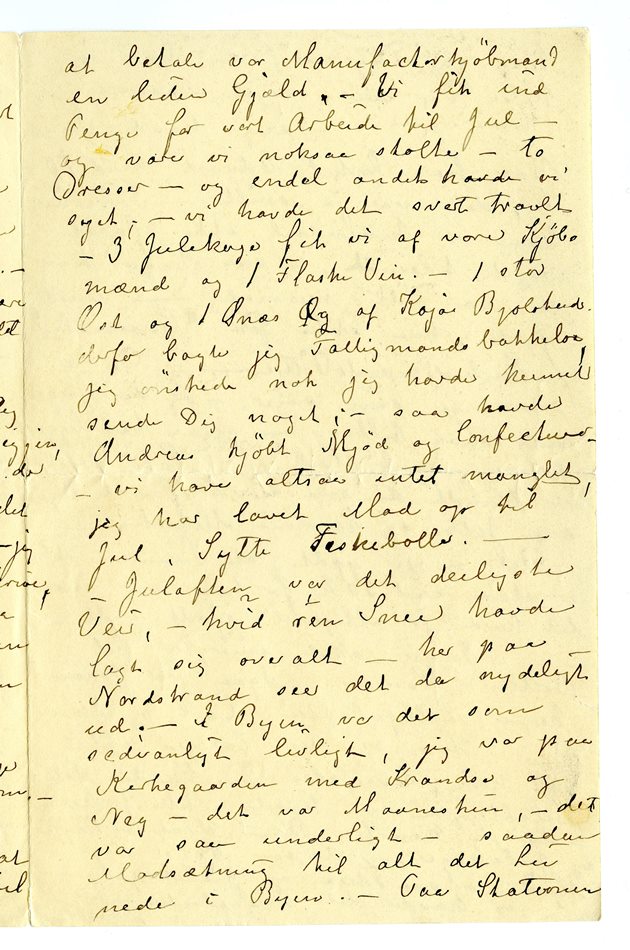 at betale vor Manufacturkjøbmand
en liden Gjæld. – Vi fik ind
Penge for vort Arbeide til Jul –
og vare vi noksaa stolte – to
Dresser – og endel andet havde vi
syet; – vi havde det svært travlt
– 3 Julekage fik vi af vore Kjøb-
mænd og 1 Flaske Vin. – 1 stor
Ost og 1 af Kajas
derfor bagte jeg Fattigmandsbakkelse,
jeg ønskede nok jeg havde kunnet
sende Dig noget; – saa havde
Andreas kjøbt Mjød og Confecturer
– vi have altsaa intet manglet,
jeg har lavet Mad op til
Jul, Sylte Fiskeboller. –
– Julaften var det deiligste
Veir, – hvid ren Snee havde
lagt sig overalt – her paa
Nordstrand seer det da nydeligt
ud. – I Byen var det som
sedvanlight livligt, jeg var paa
Kirkegaarden med Krandse og
Neg – det var Maaneskin, – det
var saa underligt – saadan
Modsætning til alt det Liv
nede i Byen. – Paa Stationen